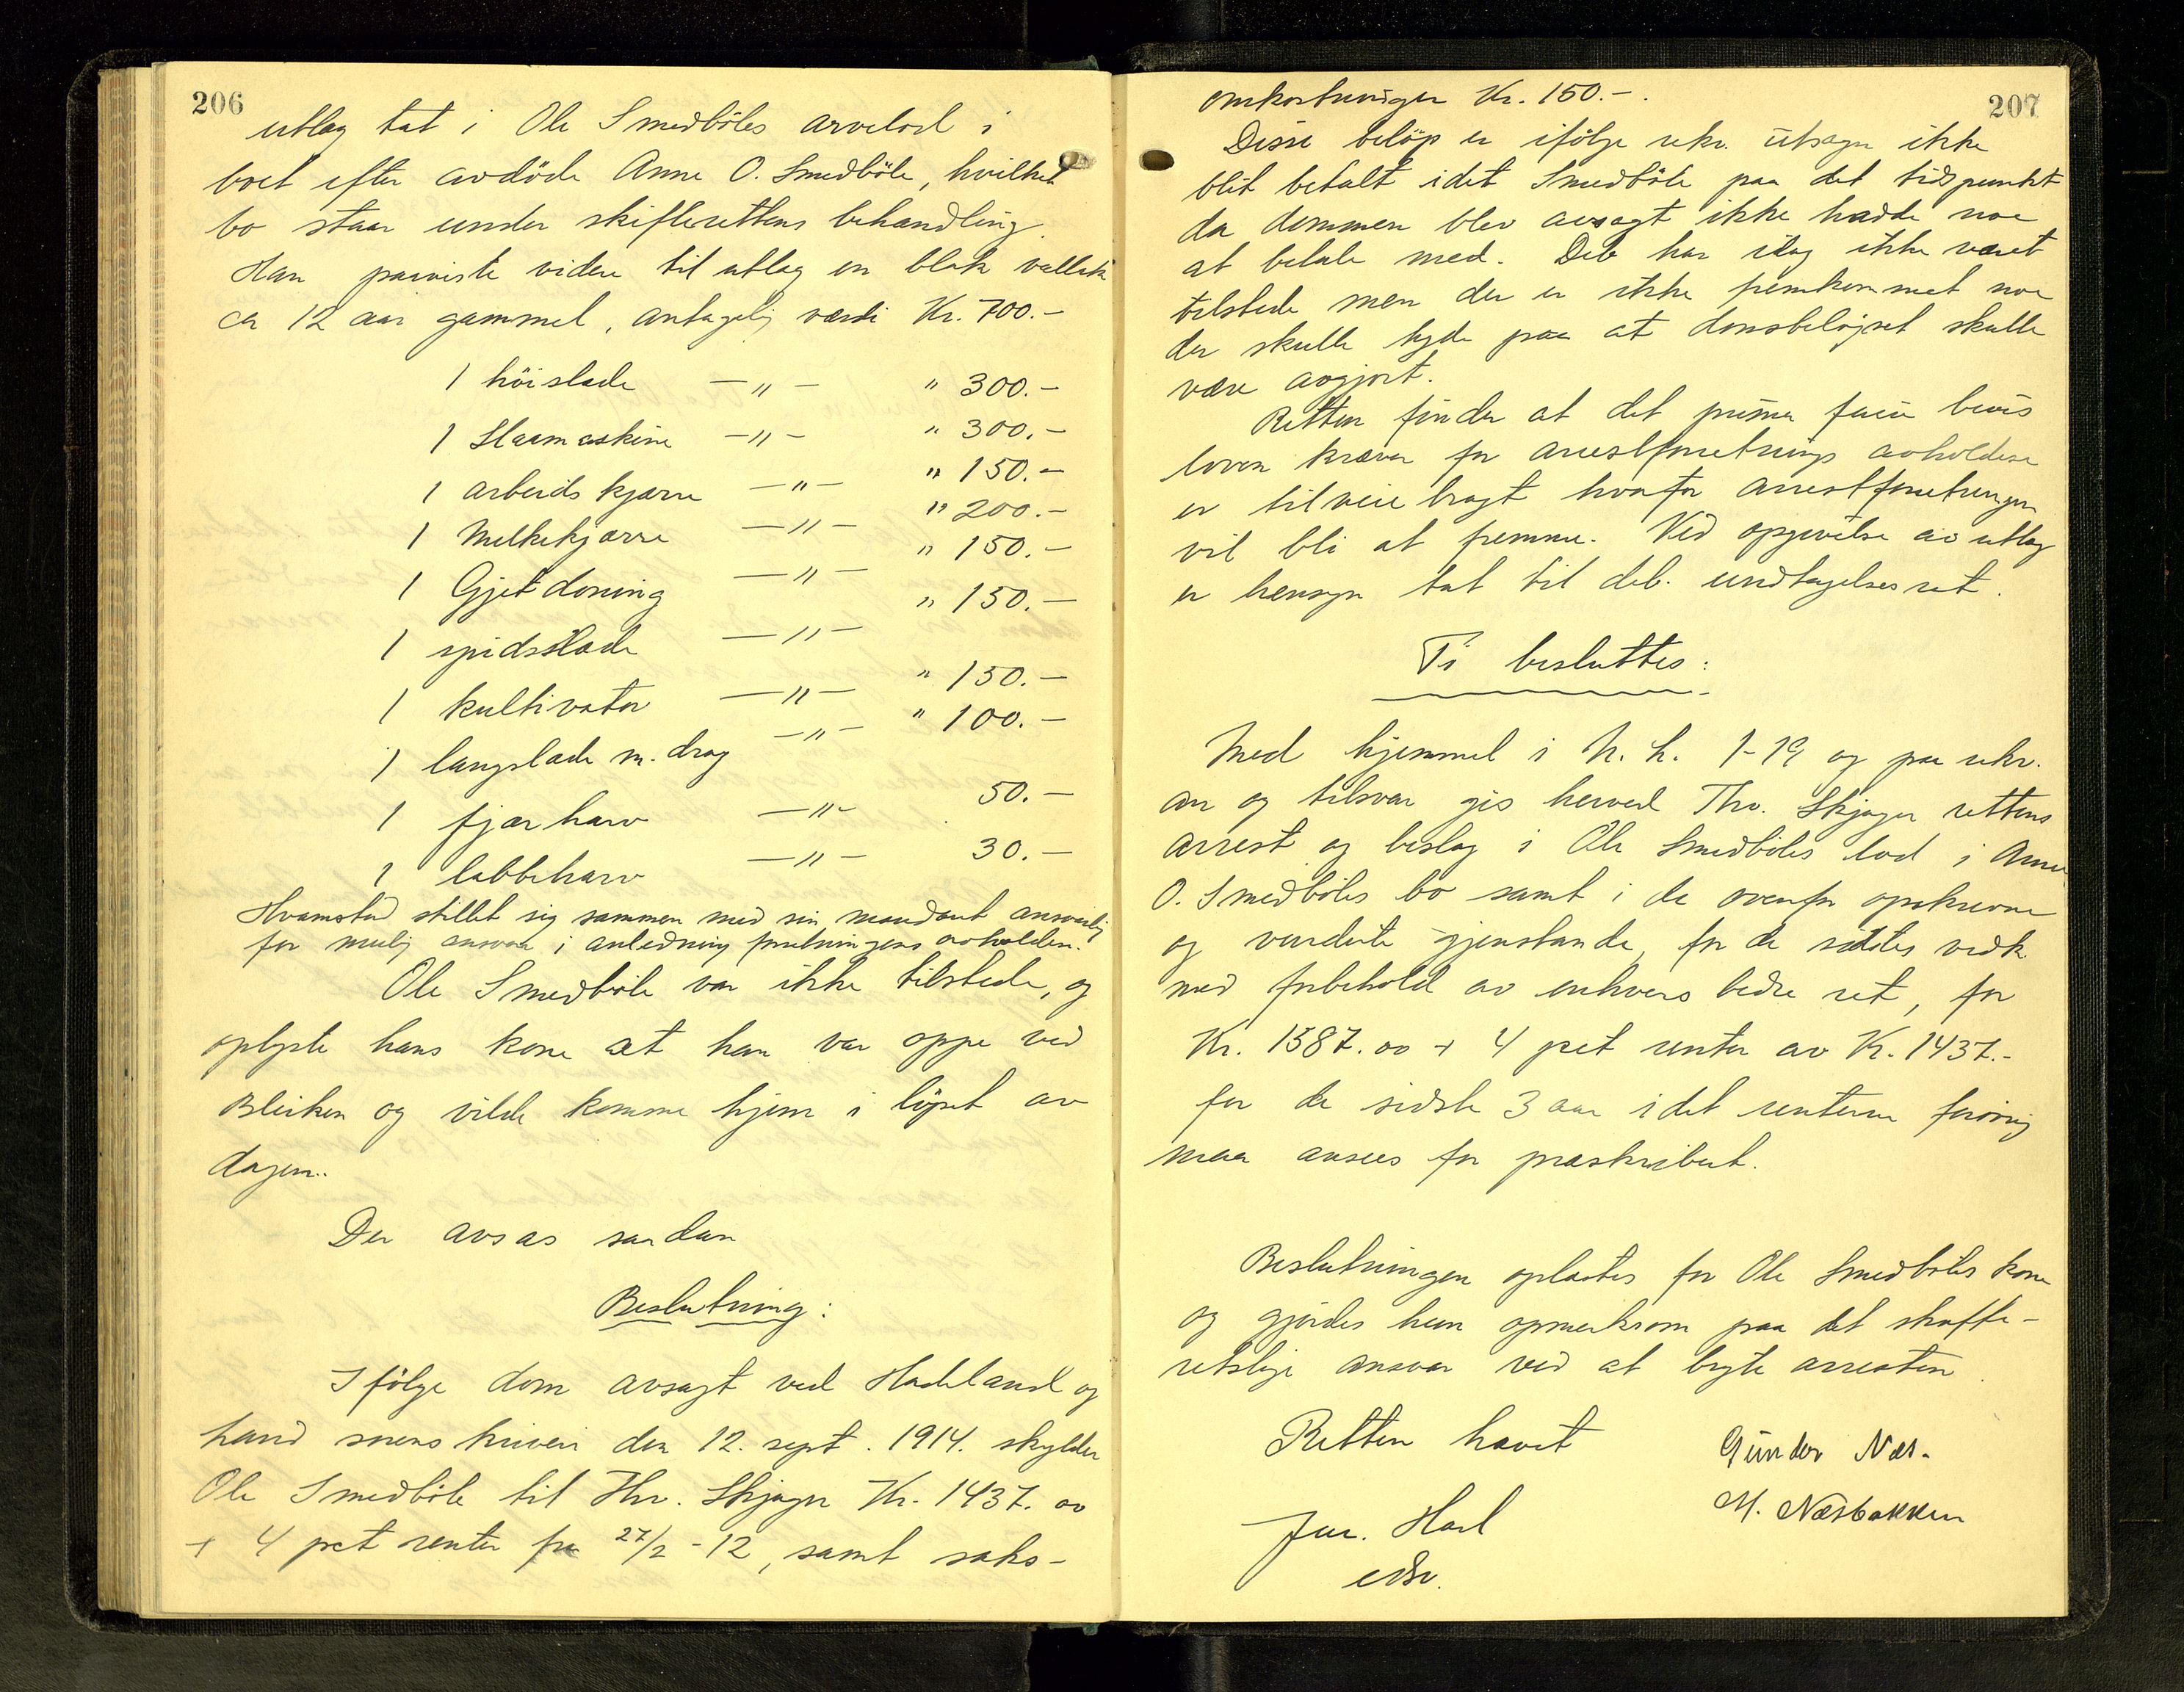 206
utlag tat i Ole Smedböles arvelod i
boet efter avdöde Anne O. Smedböle, hvilket
bo staar under skifterettens behandling.
Han paaviste videre til utlag en blak vallak
ca 12 aar gammel, antagelig værdi Kr. 700.-
1 höislade — " — " 300.-
1 Slaamaskine — " — " 300.-
1 arbeidskjærre — " — " 150.-
1 Melkekjærre — " — " 200.-
1 Gjetdoning — " — " 150.-
1 spidsslade — " — " 150.-
1 kultivator — " — " 150.-
1 langslade m. drag — " — " 100.-
1 fjærharv — " — 50.-
1 labbeharv — " — 30.-
Hvamstad stillet sig sammen med sin mandant ansvarlig
for mulig ansvar i anledning forretningens avholdelse.
Ole Smedböle var ikke tilstede, og
oplyste hans kone at han var oppe ved
Bleiken og vilde komme hjem i löpet av
dagen.
Der avsas saadan
Beslutning:
Ifölge dom avsagt ved Hadeland og
Land sorenskriveri den 12. sept. 1914. skylder
Ole Smedböle til Thv. Skjager Kr. 1437.00
+ 4 pct renter fra 27/2-12, samt saks-
207
omkostninger Kr. 150.-.
Disse belöp er ifölge rekv. utsagn ikke
blit betalt idet Smedböle paa det tidspunkt
da dommen blev avsagt ikke hadde noe
at betale med. Deb har idag ikke været
tilstede men der er ikke fremkommet noe
der skulle tyde paa at domsbelöpet skulle
være avgjort.
Retten finder at det prima facie bevis
loven kræver for arrestforretnings avholdelse
er tilveiebragt hvorfor arrestforretningen
vil bli at fremme. Ved opgivelse av utlag
er hensyn tat til deb. undtagelsesret.
Ti besluttes:
Med hjemmel i N. L. 1-19 og paa rekv.
an og tilsvar gis herved Thv. Skjager rettens
arrest og beslag i Ole Smedböles lod i Anne
O. Smedböles bo samt i de ovenfor opskrevne
og vurderte gjenstande, for de sidstes vedk
med forbehold av enhvers bedre ret, for
Kr. 1587.00 + 4 pct renter av Kr. 1437.-
for de sidste 3 aar idet renterne forövrig
maa ansees for præskribert.
Beslutningen oplæstes for Ole Smedböles kone
og gjordes hun opmerksom paa det straffe-
retslige ansvar ved at bryte arresten.
Retten hævet
Gunder Næs.
M. Næsbakken
Jul. Hoel
edsv.